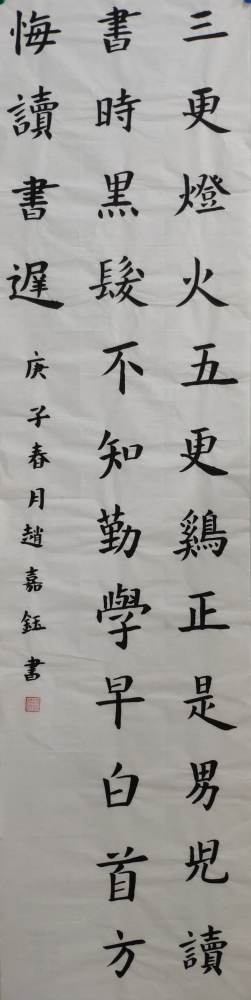 三更燈火五更鷄正是男兒讀
書時黑髮不知勤學早白首方
悔讀書遲
庚子春月趙嘉鈺書